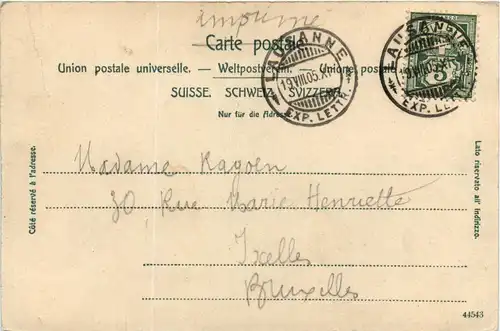 imprimé
Carte postale.
Union postale universelle. — Weltpostverein. — Unione postale
SUISSE. SCHWEIZ. SVIZZERA.
Nur für die Adresse.
LAUSANNE
19.VIII.05.XI
EXP. LETTR.
LAUSANNE
19.VIII.05.XI
EXP. LETTR.
5
Côté réservé à l'adresse.
Lato riservato all' indirizzo.
Madame Kagoen
30 Rue Marie Henriette
Ixelles
Bruxelles
44543